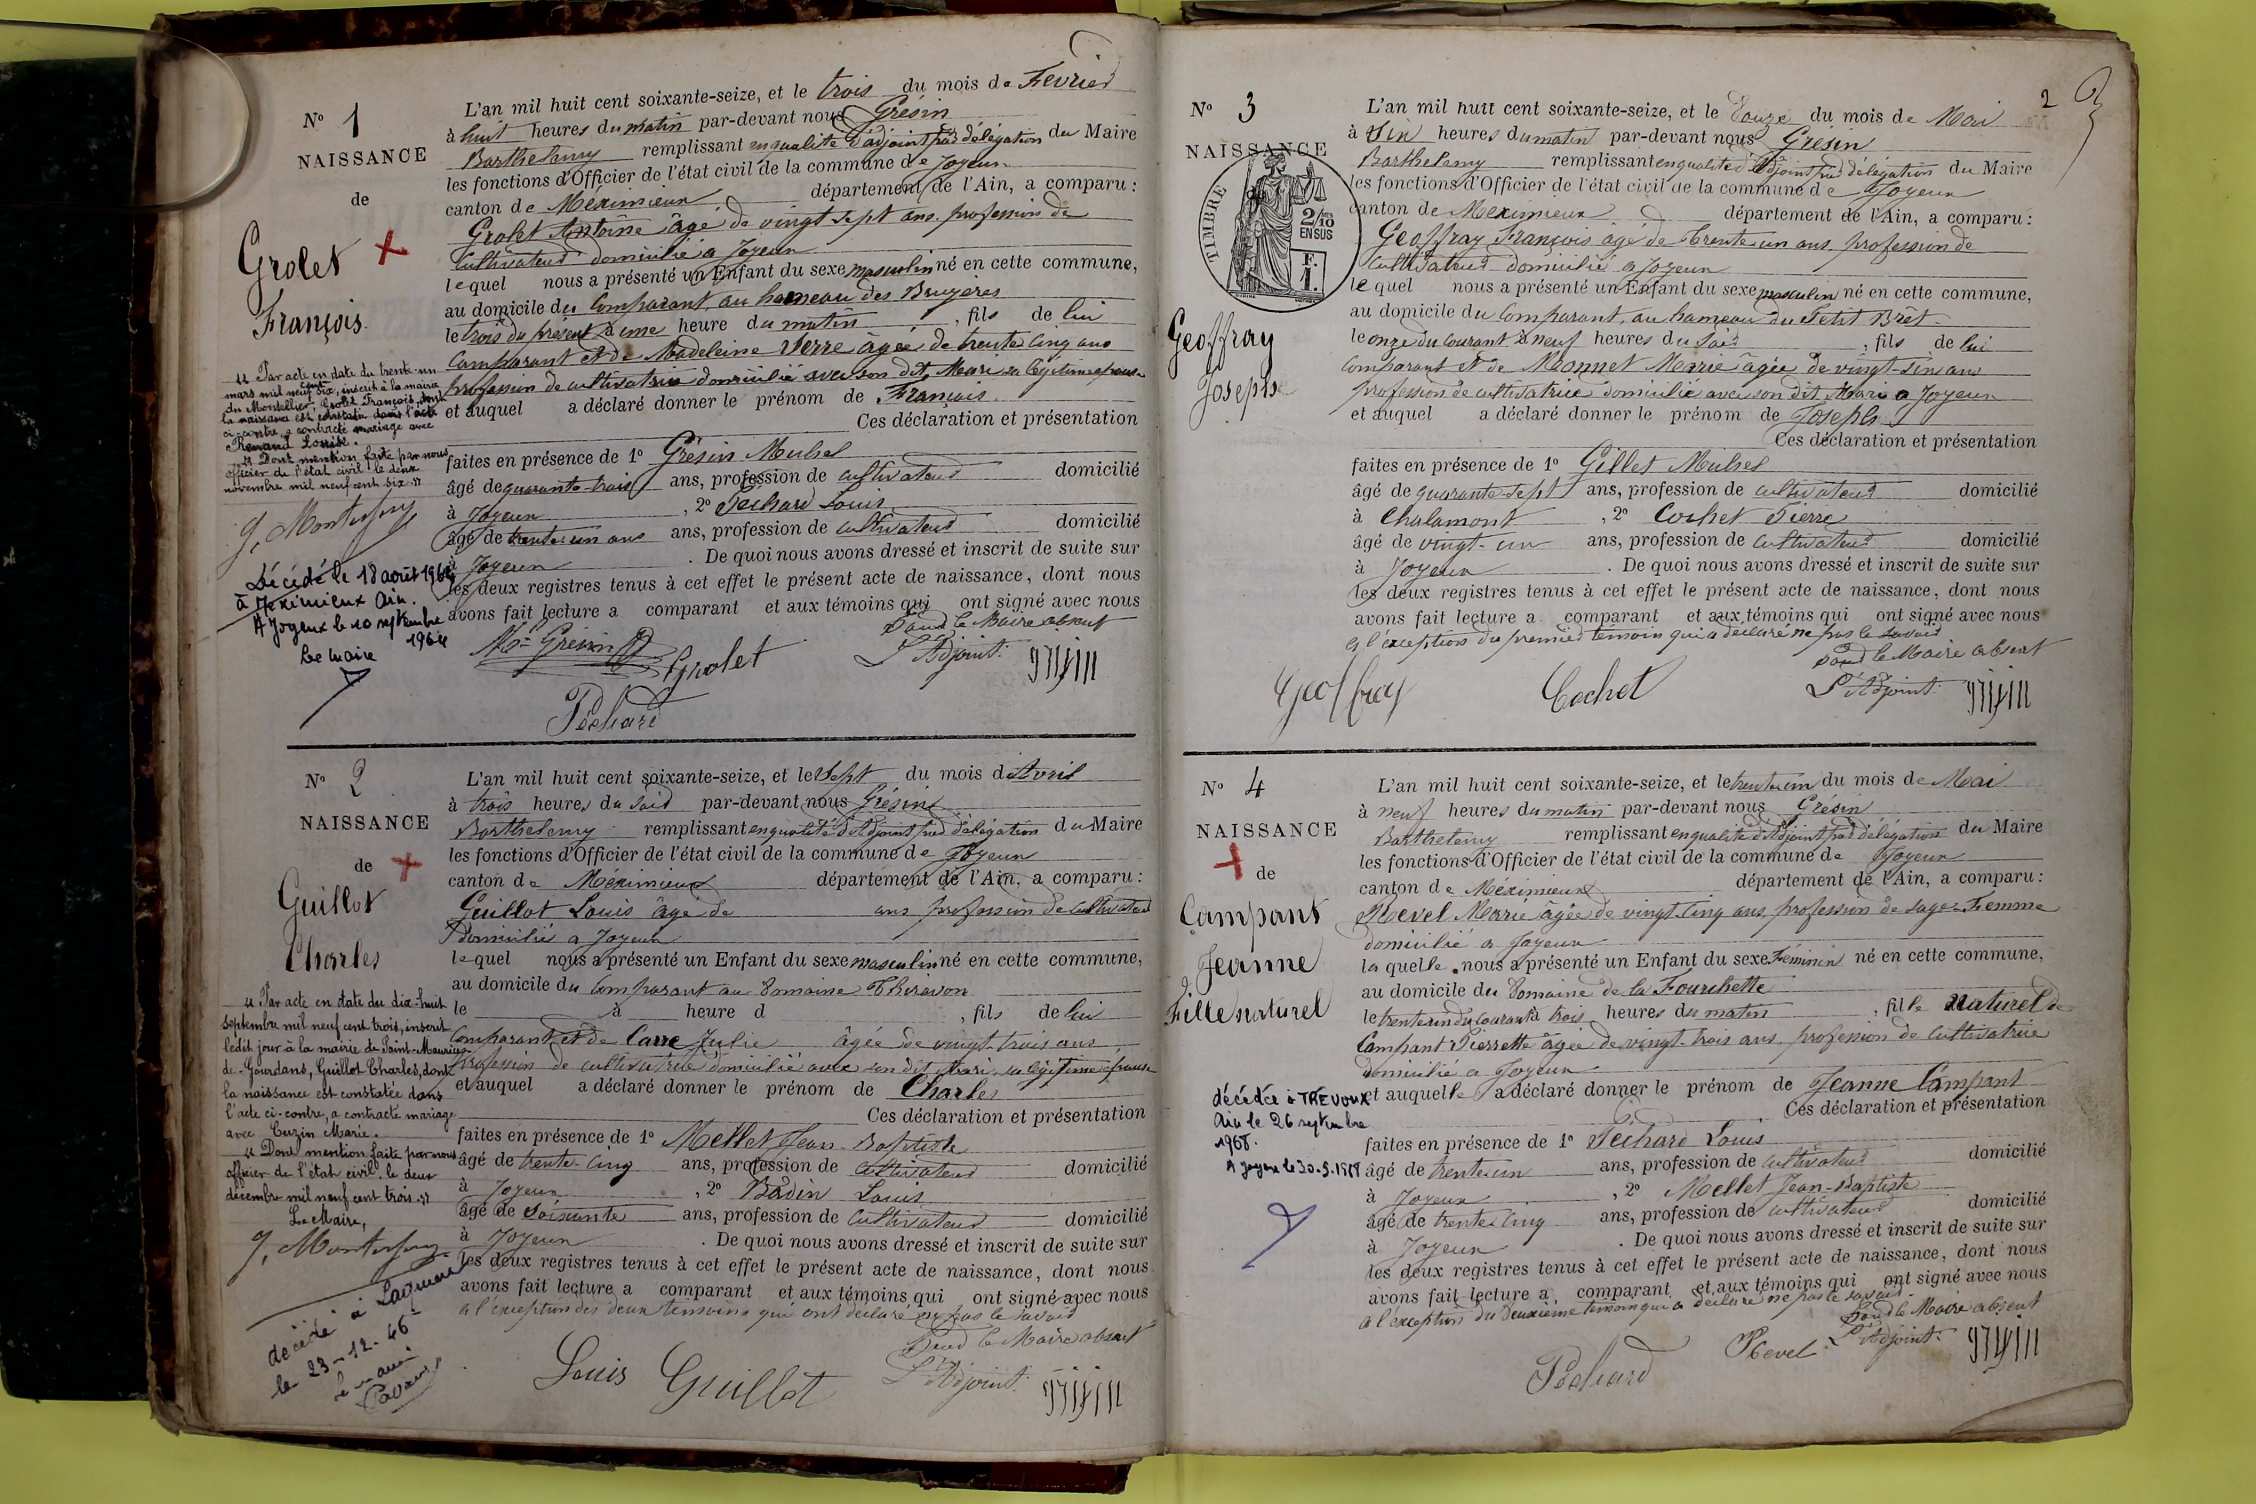 N° 1
NAISSANCE
de
Grolet
François
L'an mil huit cent soixante-seize, et le trois du mois de Fevrier
à huit heures du matin par-devant nous Grésin
Barthelemy remplissant en qualité d'adjoint par délégation du Maire
les fonctions d'Officier de l'état civil de la commune de Joyeux
canton de Méximieux département de l'Ain, a comparu :
Grolet Antoine âgé de vingt sept ans profession de
Cultivateur domicilié a Joyeux
lequel nous a présenté un Enfant du sexe masculin né en cette commune,
au domicile du Comparant, au hameau des Bruyeres
le trois du présent à une heure du matin, fils de lui
Comparant et de Madeleine Verre âgée de trente cinq ans
profession de cultivatrice domicilié avec son dit Mari sa légitime épouse
et auquel a déclaré donner le prénom de François
Ces déclaration et présentation
faites en présence de 1° Grésin Michel
âgé de quarante-trois ans, profession de cultivateur domicilié
à Joyeux, 2° Pechard Louis
âgé de trente un ans ans, profession de cultivateur domicilié
à Joyeux. De quoi nous avons dressé et inscrit de suite sur
les deux registres tenus à cet effet le présent acte de naissance, dont nous
avons fait lecture a comparant et aux témoins qui ont signé avec nous
Pour le Maire absent
L'Adjoint
Grolet
Pechard
" Par acte en date du trente-un
mars mil neuf cent six, inscrit à la mairie
du Montellier, Grolet François, dont
la naissance est constatée dans l'acte
ci-contre, a contracté mariage avec
Renaud Louise.
" Dont mention faite par nous
officier de l'état civil le deux
novembre mil neuf cent six "
Décédé le 18 août 1964
à Meximieux Ain.
A Joyeux le 10 septembre
1964
Le Maire
N° 2
NAISSANCE
de
Guillot
Charles
L'an mil huit cent soixante-seize, et le Sept du mois d'Avril
à trois heures du soir par-devant nous Grésin
Barthelemy remplissant en qualité d'Adjoint par délégation du Maire
les fonctions d'Officier de l'état civil de la commune de Joyeux
canton de Méximieux département de l'Ain, a comparu :
Guillot Louis âgé de ans profession de cultivateur
domicilié a Joyeux
lequel nous a présenté un Enfant du sexe masculin né en cette commune,
au domicile du Comparant au Domaine
le à heure d, fils de lui
Comparant et de Carre Julie âgée de vingt-trois ans
profession de cultivatrice domicilié avec son dit Mari sa légitime épouse
et auquel a déclaré donner le prénom de Charles
Ces déclaration et présentation
faites en présence de 1° Mellet Jean Baptiste
âgé de trente-cinq ans, profession de cultivateur domicilié
à Joyeux, 2° Badin Louis
âgé de soixante ans, profession de cultivateur domicilié
à Joyeux. De quoi nous avons dressé et inscrit de suite sur
les deux registres tenus à cet effet le présent acte de naissance, dont nous
avons fait lecture a comparant et aux témoins qui ont signé avec nous
a l'exception des deux témoins qui ont déclaré ne pas le savoir
Pour le Maire absent
L'Adjoint
Louis Guillot
" Par acte en date du dix-huit
septembre mil neuf cent trois, inscrit
ledit jour à la mairie de Saint-Maurice
de-Gourdans, Guillot Charles, dont
la naissance est constatée dans
l'acte ci-contre, a contracté mariage
avec Cuzin Marie.
" Dont mention faite par nous
officier de l'état civil le deux
décembre mil neuf cent trois "
Le Maire,
décédé à
le 23-12-46
le maire
2
N° 3
NAISSANCE
TIMBRE
2/10
EN SUS
F.
1.
Geoffray
Joseph
L'an mil huit cent soixante-seize, et le Douze du mois de Mai
à Six heures du matin par-devant nous Grésin
Barthelemy remplissant en qualité d'Adjoint par délégation du Maire
les fonctions d'Officier de l'état civil de la commune de Joyeux
canton de Meximieux département de l'Ain, a comparu :
Geoffray François agé de trente un ans profession de
Cultivateur domicilié a Joyeux
lequel nous a présenté un Enfant du sexe masculin né en cette commune,
au domicile du Comparant, au hameau du Petit Brêt
le onze du courant à neuf heures du soir, fils de lui
Comparant et de Monnet Marie âgée de vingt-six ans
profession de cultivatrice domicilié avec son dit Mari a Joyeux
et auquel a déclaré donner le prénom de Joseph
Ces déclaration et présentation
faites en présence de 1° Gillet Michel
âgé de quarante-sept ans, profession de cultivateur domicilié
à Chalamont, 2° Cochet Pierre
âgé de vingt-un ans, profession de cultivateur domicilié
à Joyeux. De quoi nous avons dressé et inscrit de suite sur
les deux registres tenus à cet effet le présent acte de naissance, dont nous
avons fait lecture a comparant et aux témoins qui ont signé avec nous
a l'exception du premier témoin qui a déclaré ne pas le savoir
Pour le Maire absent
L'Adjoint
Geoffray
Cochet
N° 4
NAISSANCE
de
Campant
Jeanne
Fille naturel
L'an mil huit cent soixante-seize, et le trente un du mois de Mai
à neuf heures du matin par-devant nous Grésin
Barthelemy remplissant en qualité d'Adjoint par délégation du Maire
les fonctions d'Officier de l'état civil de la commune de Joyeux
canton de Méximieux département de l'Ain, a comparu :
Revel Marie âgée de vingt-cinq ans profession de sage-Femme
domicilié a Joyeux
laquelle nous a présenté un Enfant du sexe Féminin né en cette commune,
au domicile du Domaine de la Fourchette
le trente un du courant à trois heures du matin, fille naturel de
Campant Pierrette âgée de vingt-trois ans profession de cultivatrice
domicilié a Joyeux
et auquelle a déclaré donner le prénom de Jeanne Campant
Ces déclaration et présentation
faites en présence de 1° Pechard Louis
âgé de trente un ans, profession de cultivateur domicilié
à Joyeux, 2° Mellet Jean-Baptiste
âgé de trente cinq ans, profession de cultivateur domicilié
à Joyeux. De quoi nous avons dressé et inscrit de suite sur
les deux registres tenus à cet effet le présent acte de naissance, dont nous
avons fait lecture a comparant et aux témoins qui ont signé avec nous
a l'exception du Deuxième témoin qui a déclaré ne pas le savoir
Pour le Maire absent
L'Adjoint
Revel
Pechard
décédée à TREVOUX
Ain le 26 septembre
1968.
A Joyeux le 30-9-1968